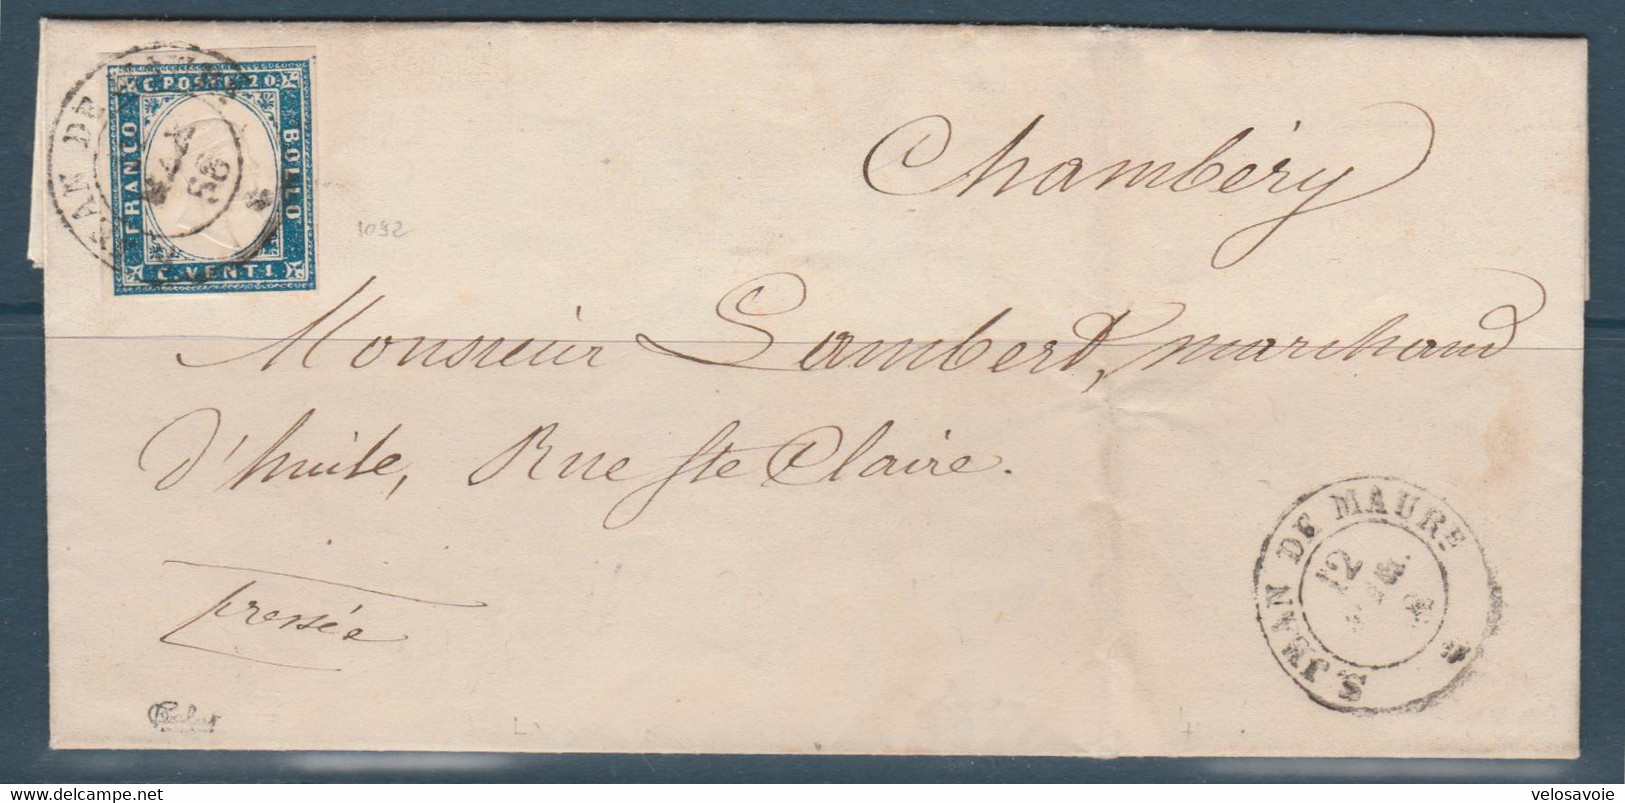 C. POSTE 20
FRANCO
BOLLO
C. VENTI
56
1092
Chambéry
Monsieur Lambert, marchand
d'huile, Rue Ste Claire.
pressée
S. JEAN DE MAURE
12
www.delcampe.net
velosavoie